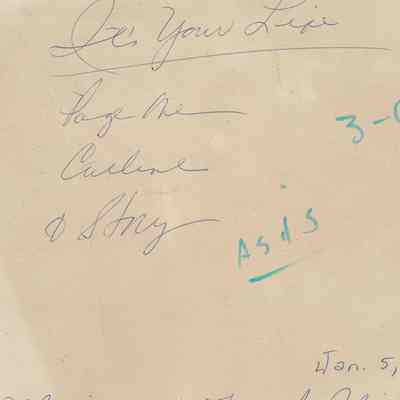 It's Your Life
Page One
Cutline
& Story
3-
AS iS
Jan. 5,